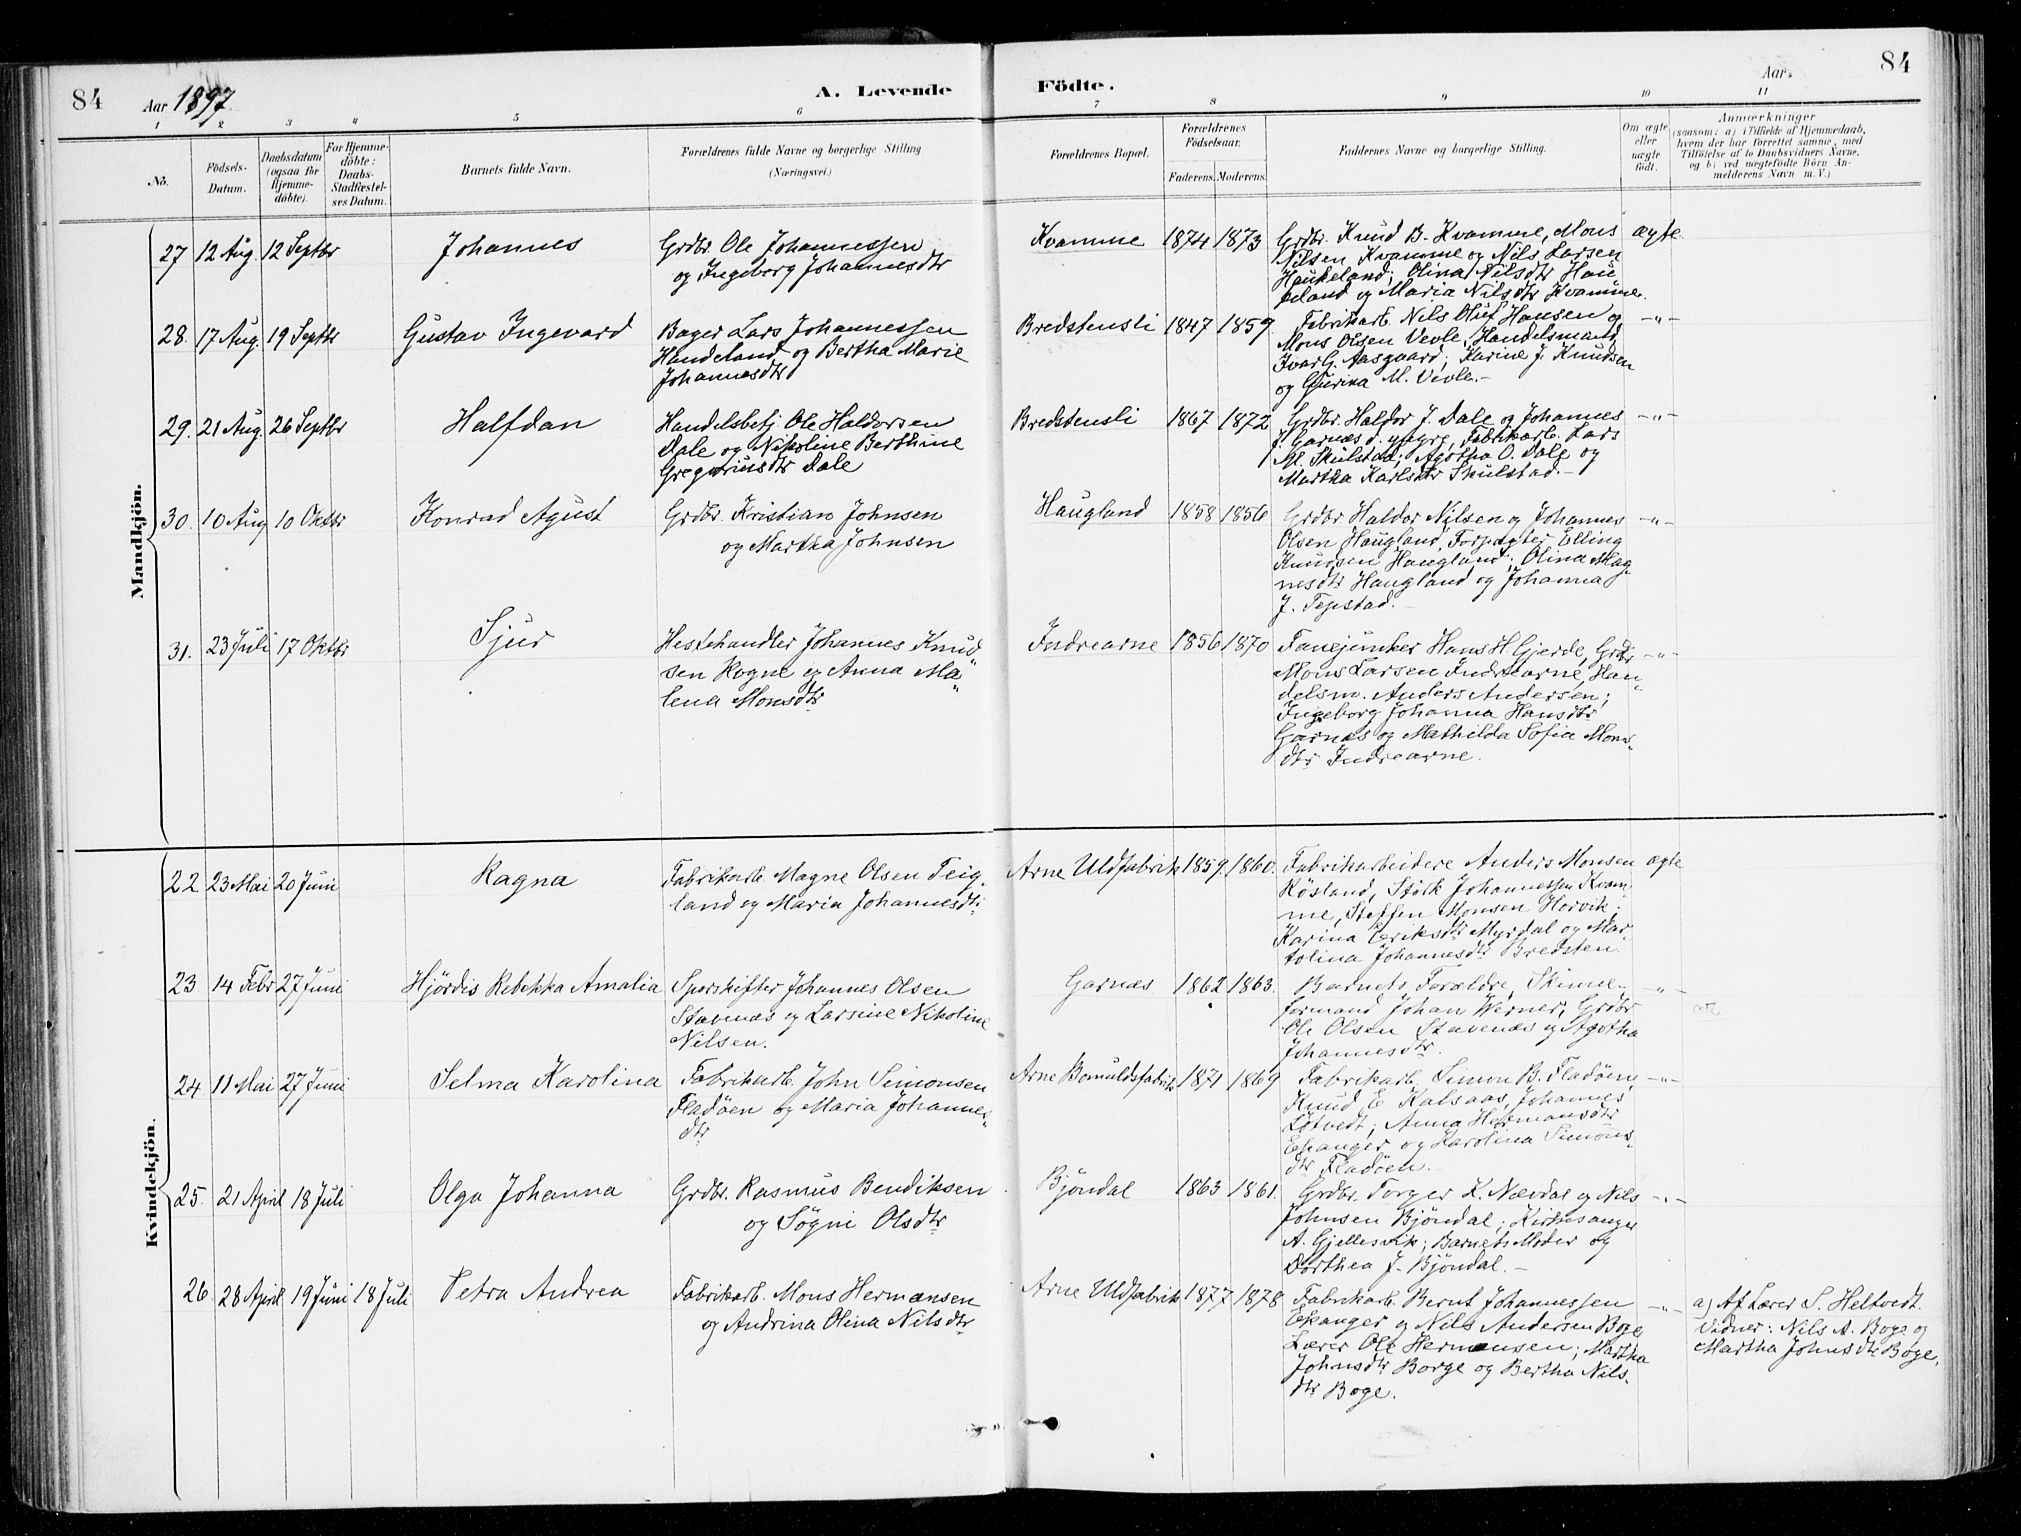 84
Aar 1897
A. Levende
Födte.
Aar
84
1
2
3
4
5
6
7
8
9
10
11
No.
Födsels-
Datum.
Daabsdatum
(ogsaa for
Hjemme-
döbte).
For Hjemme-
döbte:
Daabs-
Stadfæstel-
ses Datum.
Barnets fulde Navn.
Forældrenes fulde Navne og borgerlige Stilling
(Næringsvei.)
Forældrenes Bopæl.
Forældrenes
Födselsaar.
Faderens.
Moderens.
Faddernes Navne og borgerlige Stilling.
Om ægte
eller
uægte
födt.
Anmærkninger
(saasom: a) i Tilfælde af Hjemmedaab,
hvem der har forrettet samme, med
Tilföielse af to Daabsvidners Navne,
og b) ved uægtefödte Börn An-
melderens Navn m. V.)
Mandkjön.
27 12 Aug. 12 Septbr
Johannes
Grdbr. Ole Johannessen
og Ingeborg Johannesdtr
Kvamme
1874 1873
Grdbr. Knud B. Kvamme, Mons
Nilsen Kvamme og Nils Larsen
Haukeland; Olina Nilsdtr Hau
keland og Maria Nilsdtr Kvamme.
ægte
28. 17 Aug. 19 Septbr
Gustav Ingevard
Bager Lars Johannessen
Haukeland og Bertha Marie
Johannesdtr
Bredstensli
1847 1859.
Fabrikarb. Nils Oluf Hansen og
Mons Olsen Vevle, Handelsmand
Ivar G. Aasgaard; Karine J. Knudsen
og Gurina M. Vevle.-
-"-
29. 21 Aug. 26 Septbr
Halfdan
Handelsbetj. Ole Haldorsen
Dale og Nikoline Berthine
Gregoriusdtr Dale
Bredstensli
1867 1872
Grdbr. Haldor J. Dale og Johannes
J. Garnæs d. yngre, Fabrikarb. Lars
M. Skulstad; Agotha O. Dale og
Martha Karlsdtr Skulstad.-
-"-
30. 10 Aug 10 Oktbr
Konrad Agust
Grdbr. Kristian Johnsen
og Martha Johnsen
Haugland
1858 1856
Grdbr Haldor Nilsen og Johannes
Olsen Haugland, Forpagter Elling
Knudsen Haugland; Olina Mag-
nesdtr Haugland og Johanna
J. Tepstad.-
-"-
31. 23 Juli 17 Oktbr
Sjur
Hestehandler Johannes Knud
sen Rogne og Anna Ma
lena Monsdtr
Indrearne
1856 1870
Fanejunker Hans H Gjerde, Grdbr
Mons Larsen Indrearne, Han-
delsm. Anders Andersen;
Ingeborg Johanna Hansdtr
Garnæs og Mathilda Sofia Mons-
dtr Indrearne.
-"-
Kvindekjön.
22 23 Mai 20 Juni
Ragna
Fabrikarb. Magne Olsen Teig-
land og Maria Johannesdtr
Arne Uldfabrik
1859. 1860.
Fabrikarbeidere Anders Monsen
Røsland, Størk Johannessen Kvam-
me, Steffen Monsen Horvik.
Karina Eriksdtr Myrdal og Mar-
tolina Johannesdtr Bredsten.
ægte
23 14 Febr 27 Juni
Hjördis Rebekka Amalia
Sporskifter Johannes Olsen
Stavenæs og Larsine Nikoline
Nilsen.
Garnæs
1862 1863.
Barnets Forældre, Skinne-
formand Johan Werner, Grdbr
Ole Olsen Stavenæs og Agotha
Johannesdtr.
-"-
24 11 Mai 27 Juni
Selma Karolina
Fabrikarb. John Simonsen
Fladöen og Maria Johannes-
dtr
Arne Bomuldsfabrik
1871 1869
Fabrikarb. Simon B. Fladöen,
Knud E. Kalsaas, Johannes
Løtvedt; Anna Hermansdtr
Espanger og Karolina Simons-
dtr Fladöen.-
-"-
25. 21 April 18 Juli
Olga Johanna
Grdbr. Rasmus Bendiksen
og Søgni Olsdtr
Bjöndal
1863 1861.
Grdbr. Torger K. Nævdal og Nils
Johnsen Bjöndal; Kirkesanger
A. Gjellesvik; Barnets Moder og
Dorthea J. Bjöndal.-
-"-
26. 28 April 19 Juni 18 Juli
Petra Andrea
Fabrikarb. Mons Hermansen
og Andrina Olina Nilsdtr
Arne Uldfabrik
1877 1878
Fabrikarb. Bernt Johannessen
Espanger og Nils Andersen Boge
Lærer Ole Hermansen; Martha
Johnsdtr Borge og Bertha Nils-
dtr Boge.
-"-
a) Af Lærer S. Heltvedt.
Vidner: Nils A. Boge og
Martha Johnsdtr Boge.